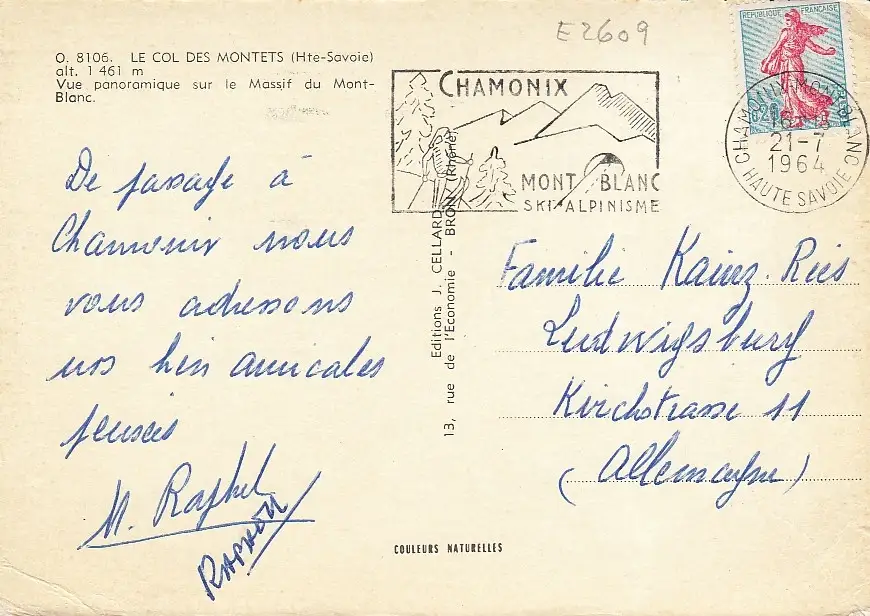 E2609
O. 8106. LE COL DES MONTETS (Hte-Savoie)
alt. 1 461 m
Vue panoramique sur le Massif du Mont-
Blanc.
De passage à
Chamonix nous
vous adressons
nos bien amicales
pensées
M. Raphel
Editions J. CELLARD
13, rue de l'Economie - BRON (Rhône)
COULEURS NATURELLES
CHAMONIX
MONT BLANC
SKI-ALPINISME
REPUBLIQUE FRANÇAISE
CHAMONIX-MONT-BLANC
21-7
1964
HAUTE SAVOIE
Familie Ries
Ludwigsburg
Kirchstrasse 11
(Allemagne)